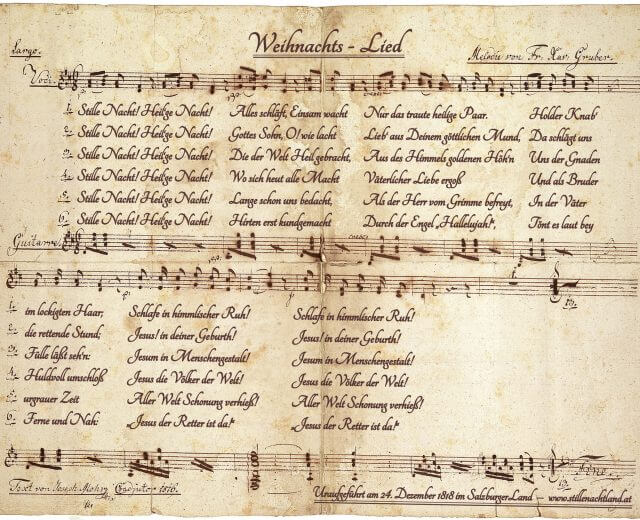 Weihnachts - Lied
Largo. Melodie von Fr. Xav. Gruber.
Voci.
1. Stille Nacht! Heil'ge Nacht! Alles schläft, Einsam wacht Nur das traute heilige Paar. Holder Knab'
2. Stille Nacht! Heil'ge Nacht! Gottes Sohn, O! wie lacht Lieb' aus Deinem göttlichen Mund, Da schlägt uns
3. Stille Nacht! Heil'ge Nacht! Die der Welt Heil gebracht, Aus des Himmels goldenen Höh'n Uns der Gnaden
4. Stille Nacht! Heil'ge Nacht! Wo sich heut alle Macht Väterlicher Liebe ergoß Und als Bruder
5. Stille Nacht! Heil'ge Nacht! Lange schon uns bedacht, Als der Herr vom Grimme befreyt, In der Väter
6. Stille Nacht! Heil'ge Nacht! Hirten erst kundgemacht Durch der Engel „Hallelujah!“, Tönt es laut bey
Guitarre.
1. im lockigten Haar; Schlafe in himmlischer Ruh! Schlafe in himmlischer Ruh!
2. die rettende Stund; Jesus! in deiner Geburth! Jesus! in deiner Geburth!
3. Fülle läßt seh'n: Jesum in Menschengestalt! Jesum in Menschengestalt!
4. Huldvoll umschloß Jesus die Völker der Welt! Jesus die Völker der Welt!
5. urgrauer Zeit Aller Welt Schonung verhieß! Aller Welt Schonung verhieß!
6. Ferne und Nah: „Jesus der Retter ist da!“ „Jesus der Retter ist da!“
Fine.
Text von Joseph Mohr Coadjutor 1816.
Uraufgeführt am 24. Dezember 1818 im SalzburgerLand – www.stillenachtland.at